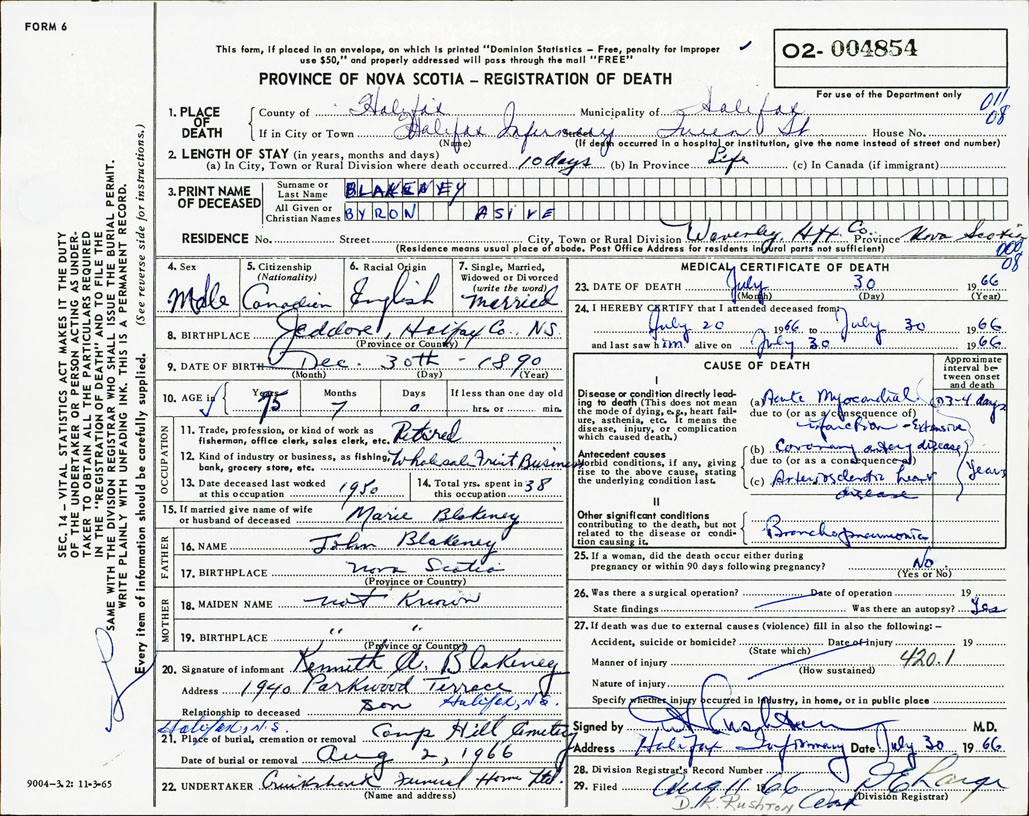 FORM 6
This form, if placed in an envelope, on which is printed "Dominion Statistics – Free, penalty for improper
use $50," and properly addressed will pass through the mail "FREE"
O2- 004854
PROVINCE OF NOVA SCOTIA – REGISTRATION OF DEATH
For use of the Department only
011
08
1. PLACE OF DEATH
County of Halifax Municipality of Halifax
If in City or Town Halifax Infirmary Street Queen St House No.
(Name) (If death occurred in a hospital or institution, give the name instead of street and number)
2. LENGTH OF STAY (in years, months and days)
(a) In City, Town or Rural Division where death occurred 10 days (b) In Province Life (c) In Canada (if immigrant)
3. PRINT NAME OF DECEASED
Surname or Last Name BLAKENEY
All Given or Christian Names BYRON ASIVE
RESIDENCE No. Street City, Town or Rural Division Waverley, Hfx Co. Province Nova Scotia
(Residence means usual place of abode. Post Office Address for residents in rural parts not sufficient)
000
08
4. Sex Male
5. Citizenship (Nationality) Canadian
6. Racial Origin English
7. Single, Married, Widowed or Divorced (write the word) Married
8. BIRTHPLACE Jeddore, Halifax Co., N.S.
(Province or County)
9. DATE OF BIRTH Dec. 30th - 1890
(Month) (Day) (Year)
10. AGE in Years 75 Months 7 Days 0 If less than one day old hrs. or min.
OCCUPATION
11. Trade, profession or kind of work as
fisherman, office clerk, sales clerk, etc. Retired
12. Kind of industry or business, as fishing,
bank, grocery store, etc. Wholesale Fruit Business
13. Date deceased last worked
at this occupation 1950
14. Total yrs. spent in
this occupation 38
15. If married give name of wife
or husband of deceased Marie Blakeney
FATHER
16. NAME John Blakeney
17. BIRTHPLACE Nova Scotia
(Province or Country)
MOTHER
18. MAIDEN NAME not Known
19. BIRTHPLACE " "
(Province or Country)
20. Signature of informant Kenneth A. Blakeney
Address 1940 Parkwood Terrace
Relationship to deceased son Halifax, N.S.
Halifax, N.S.
21. Place of burial, cremation or removal Camp Hill Cemetery
Date of burial or removal Aug 2, 1966
22. UNDERTAKER Cruikshank Funeral Home Ltd.
(Name and address)
MEDICAL CERTIFICATE OF DEATH
23. DATE OF DEATH July 30 1966
(Month) (Day) (Year)
24. I HEREBY CERTIFY that I attended deceased from:
July 20 1966 to July 30 1966
and last saw him alive on July 30 1966
CAUSE OF DEATH
Approximate interval between onset and death
I
Disease or condition directly leading to death (This does not mean the mode of dying, e.g., heart failure, asthenia, etc. It means the disease, injury, or complication which caused death.)
(a) Acute Myocardial
due to (or as a consequence of)
infarction - Extensive
3-4 days
Antecedent causes
Morbid conditions, if any, giving rise to the above cause, stating the underlying condition last.
(b) Coronary artery disease
due to (or as a consequence of)
(c) Arteriosclerotic heart
disease
Years
II
Other significant conditions
contributing to the death, but not related to the disease or condition causing it.
Bronchopneumonia
25. If a woman, did the death occur either during
pregnancy or within 90 days following pregnancy? No
(Yes or No)
26. Was there a surgical operation? Date of operation 19
State findings Was there an autopsy? Yes
27. If death was due to external causes (violence) fill in also the following:–
Accident, suicide or homicide? Date of injury 19
(State which)
Manner of injury 420.1
(How sustained)
Nature of injury
Specify whether injury occurred in industry, in home, or in public place
Signed by D K Rushton M.D.
Address Halifax Infirmary Date July 30 1966
28. Division Registrar's Record Number
29. Filed Aug 11 1966
(Division Registrar)
D. K. RUSHTON
SEC. 14 – VITAL STATISTICS ACT MAKES IT THE DUTY
OF THE UNDERTAKER OR PERSON ACTING AS UNDERTAKER TO OBTAIN ALL THE PARTICULARS REQUIRED
IN THE "REGISTRATION OF DEATH" AND TO FILE THE
SAME WITH THE DIVISION REGISTRAR WHO SHALL ISSUE THE BURIAL PERMIT.
WRITE PLAINLY WITH UNFADING INK. THIS IS A PERMANENT RECORD.
Every item of information should be carefully supplied. (See reverse side for instructions.)
9004-3.2: 11-3-65